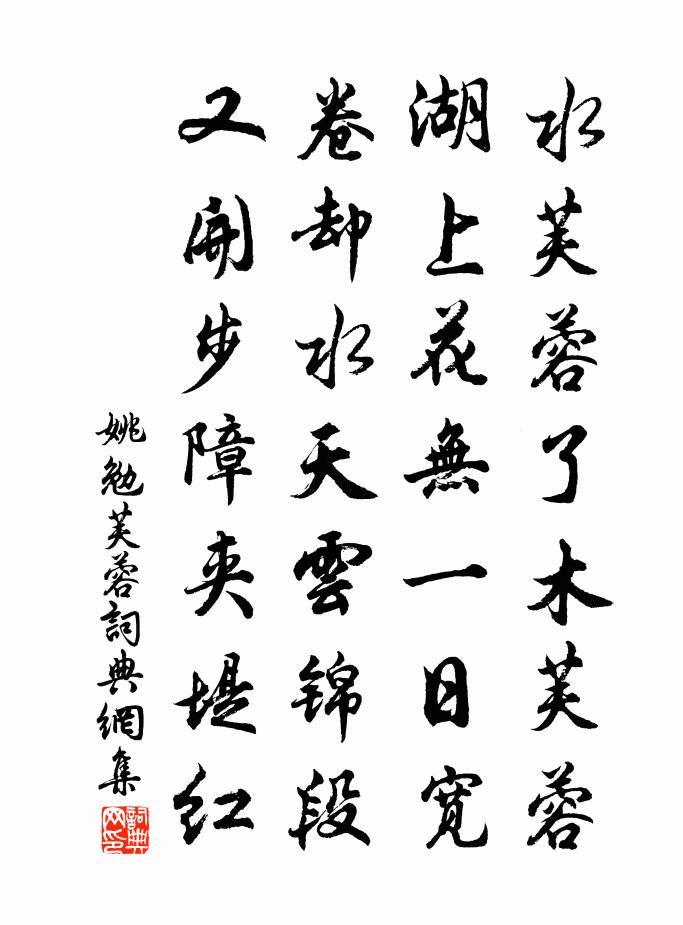 水芙蓉了木芙蓉
湖上花無一日寬
卷却水天雲锦段
又開步障夹堤红
姚勉芙蓉詞典網集
詞典网印